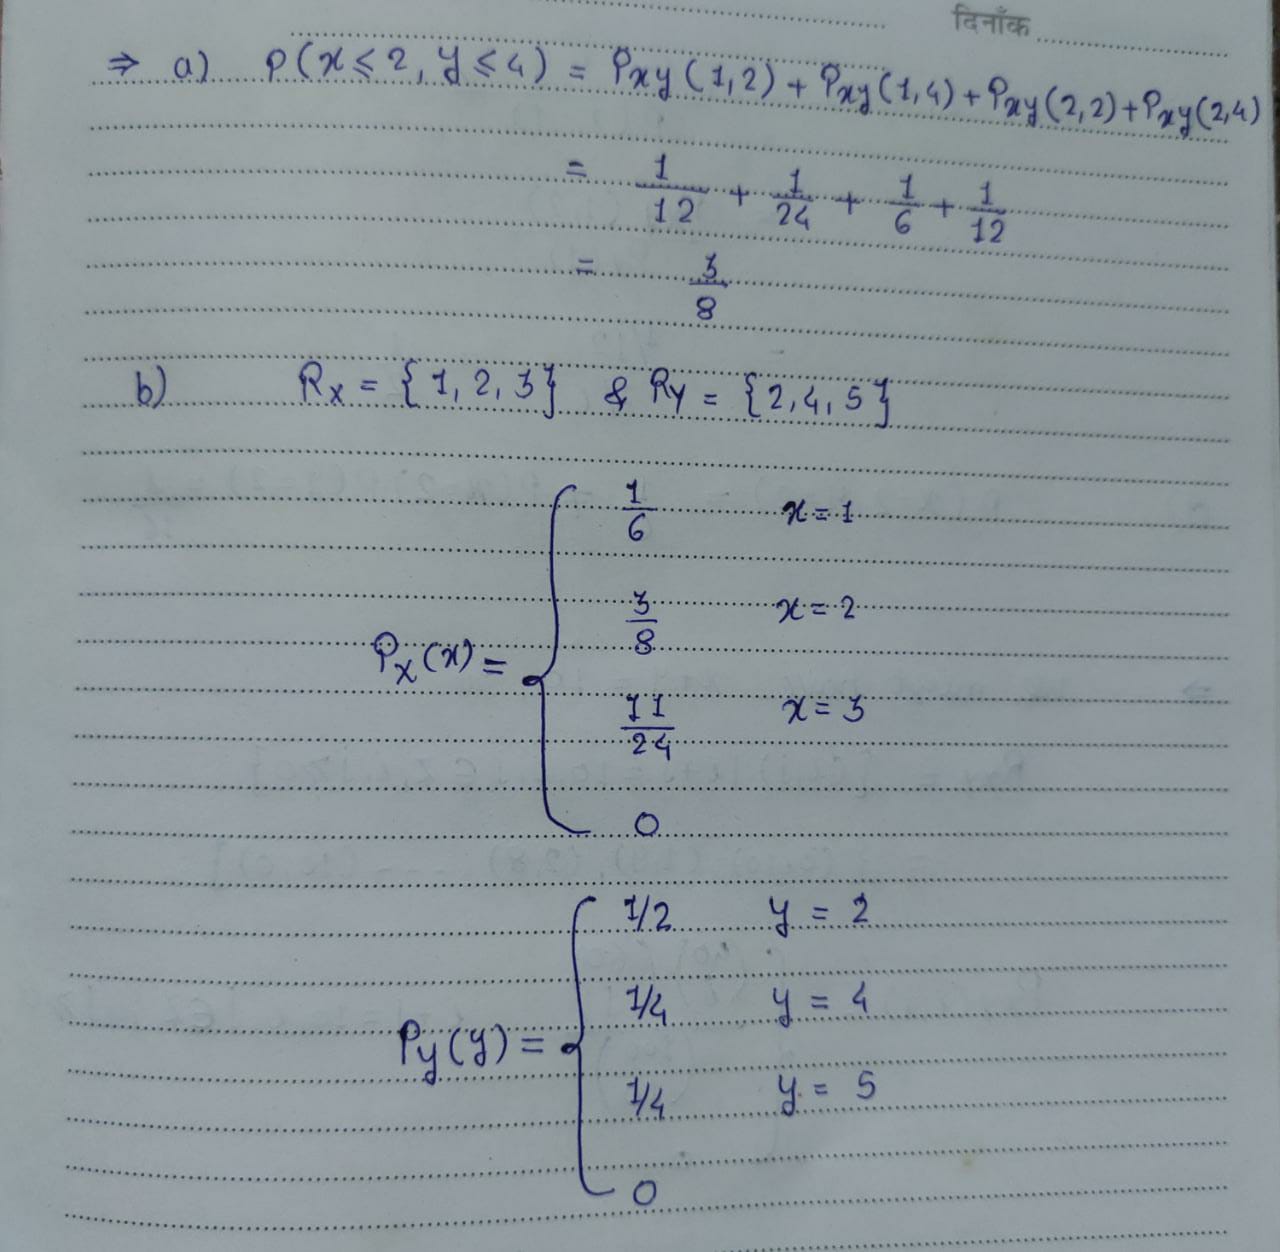 दिनाँक
⇒ a) P(x≤2, y≤4) = Pxy(1,2) + Pxy(1,4) + Pxy(2,2) + Pxy(2,4)
= 1/12 + 1/24 + 1/6 + 1/12
= 3/8
b) Rx = {1, 2, 3} & Ry = {2, 4, 5}
Px(x) = {
1/6 x = 1
3/8 x = 2
11/24 x = 3
0
Py(y) = {
1/2 y = 2
1/4 y = 4
1/4 y = 5
0